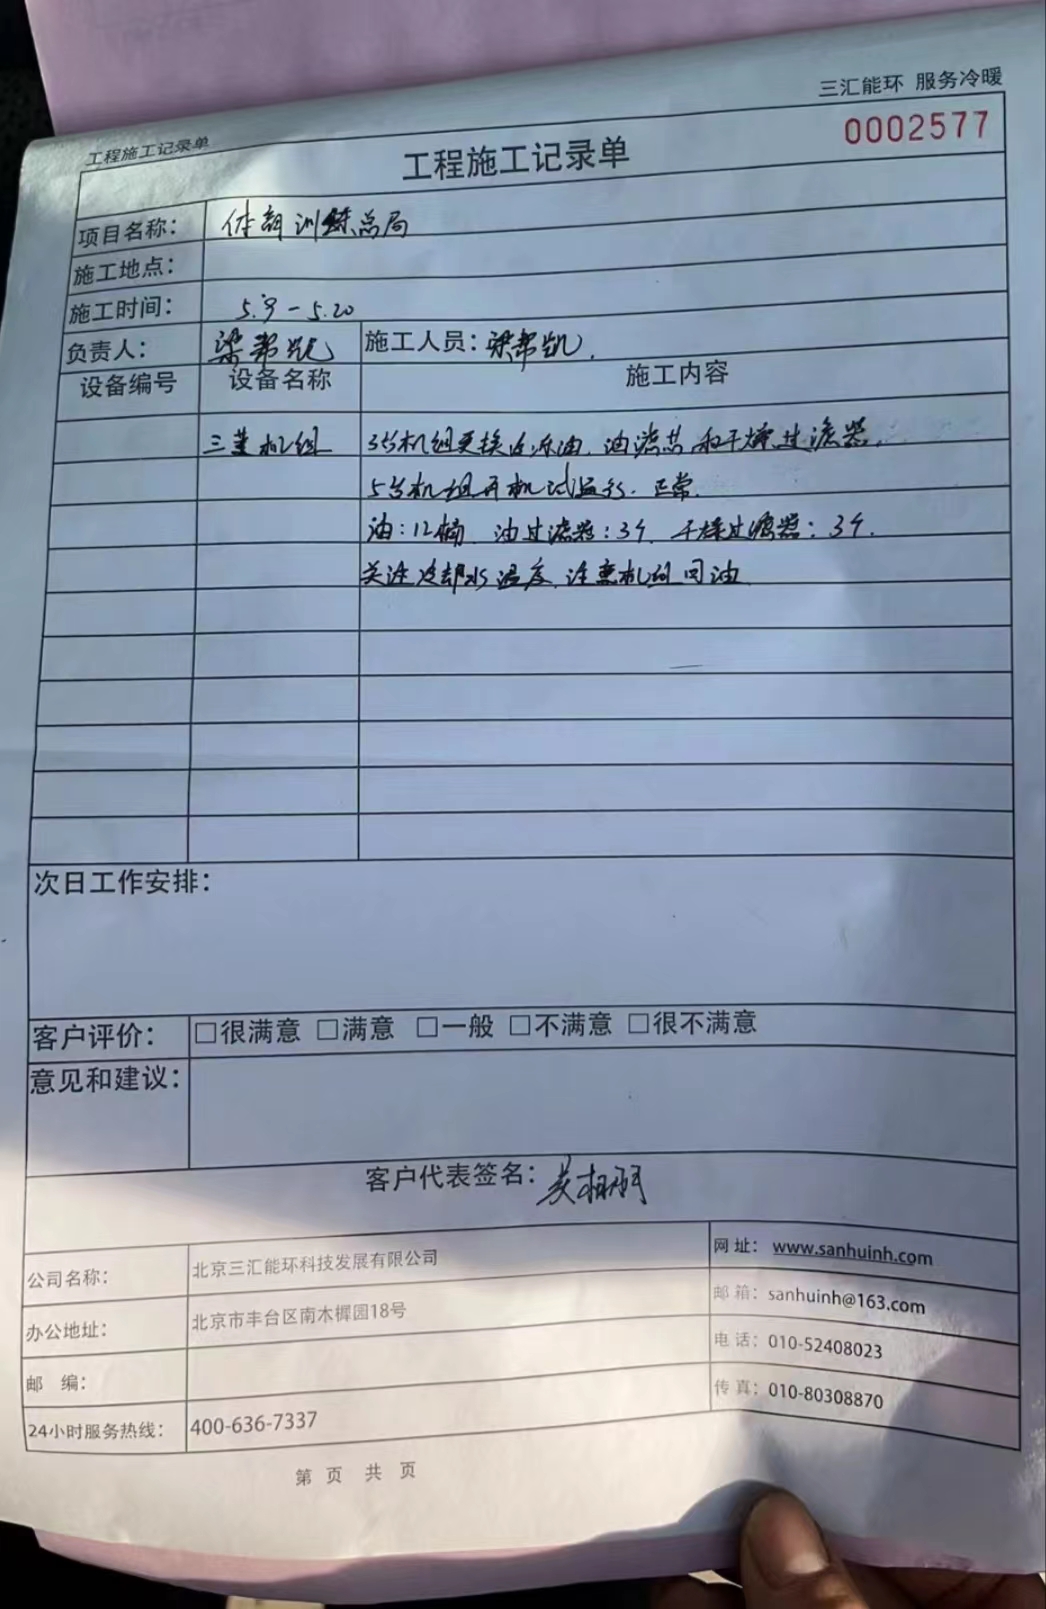 三汇能环 服务冷暖
工程施工记录单
工程施工记录单
0002577
项目名称： 体育训练总局
施工地点：
施工时间： 5.9-5.20
负责人： 梁帮凯 施工人员：梁帮凯.
设备编号 设备名称 施工内容
三菱机组 3台机组更换冷冻油、油滤芯和干燥过滤器.
5台机组开机试运行. 正常.
油：12桶、油过滤器：3个、干燥过滤器：3个.
关注冷却水温度、注意机组回油
次日工作安排：
客户评价： □很满意 □满意 □一般 □不满意 □很不满意
意见和建议：
客户代表签名：
公司名称： 北京三汇能环科技发展有限公司 网 址： www.sanhuinh.com
办公地址： 北京市丰台区南木樨园18号 邮 箱： sanhuinh@163.com
邮 编： 电 话： 010-52408023
24小时服务热线： 400-636-7337 传 真： 010-80308870
第 页 共 页